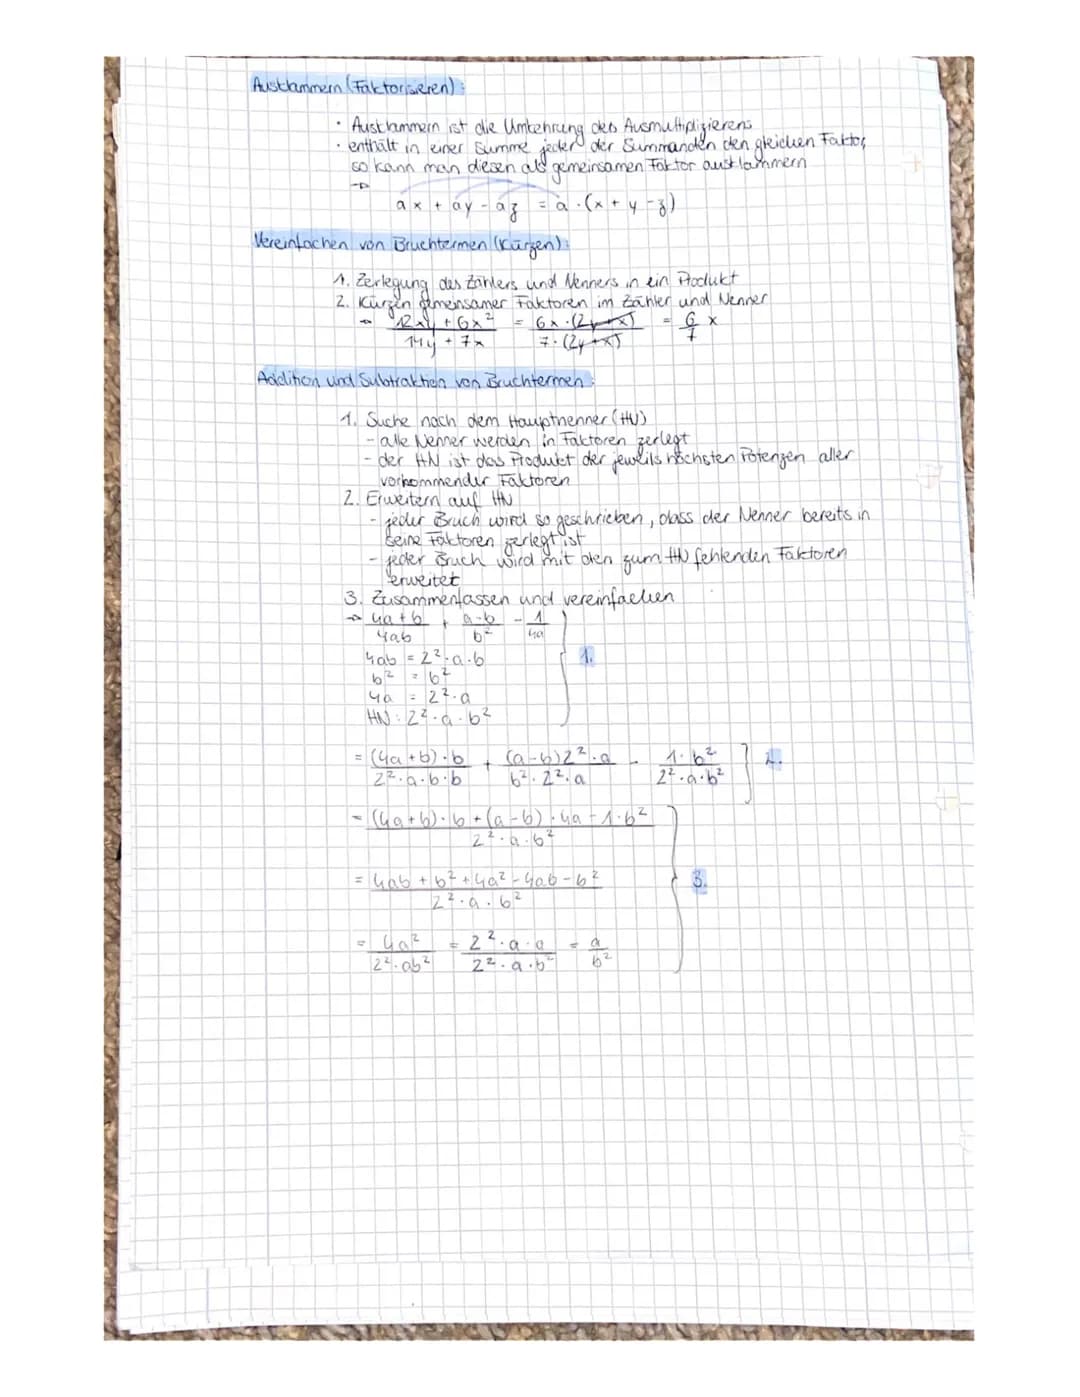 Ausklammern (Faktorisieren):
• Ausklammern ist die Umkehrung des Ausmultiplizierens
• enthält in einer Summe jeder der Summanden den gleichen Faktor,
so kann man diesen als gemeinsamen Faktor ausklammern
→
ax + ay - az = a · (x + y - z)
Vereinfachen von Bruchtermen (Kürzen):
1. Zerlegung des Zählers und Nenners in ein Produkt
2. Kürzen gemeinsamer Faktoren im Zähler und Nenner
→ (12xy + 6x²)/(14y + 7x) = (6x · (2y+x))/(7 · (2y+x)) = 6/7 x
Addition und Subtraktion von Bruchtermen:
1. Suche nach dem Hauptnenner (HN)
- alle Nenner werden in Faktoren zerlegt
- der HN ist das Produkt der jeweils höchsten Potenzen aller
vorkommender Faktoren
2. Erweitern auf HN
- jeder Bruch wird so geschrieben, dass der Nenner bereits in
seine Faktoren zerlegt ist
- jeder Bruch wird mit den zum HN fehlenden Faktoren
erweitet
3. Zusammenfassen und vereinfachen
→ (4a+b)/(4ab) + (a-b)/b² - 1/(4a)
4ab = 2² · a · b
b² = b²
4a = 2² · a
HN: 2² · a · b²
1.
= ((4a+b) · b)/(2² · a · b · b) + ((a-b)2² · a)/(b² · 2² · a) - (1 · b²)/(2² · a · b²) 2.
= ((4a+b) · b + (a-b) · 4a - 1 · b²)/(2² · a · b²)
= (4ab + b² + 4a² - 4ab - b²)/(2² · a · b²) 3.
= 4a²/(2² · ab²) = (2² · a · a)/(2² · a · b²) = a/b²